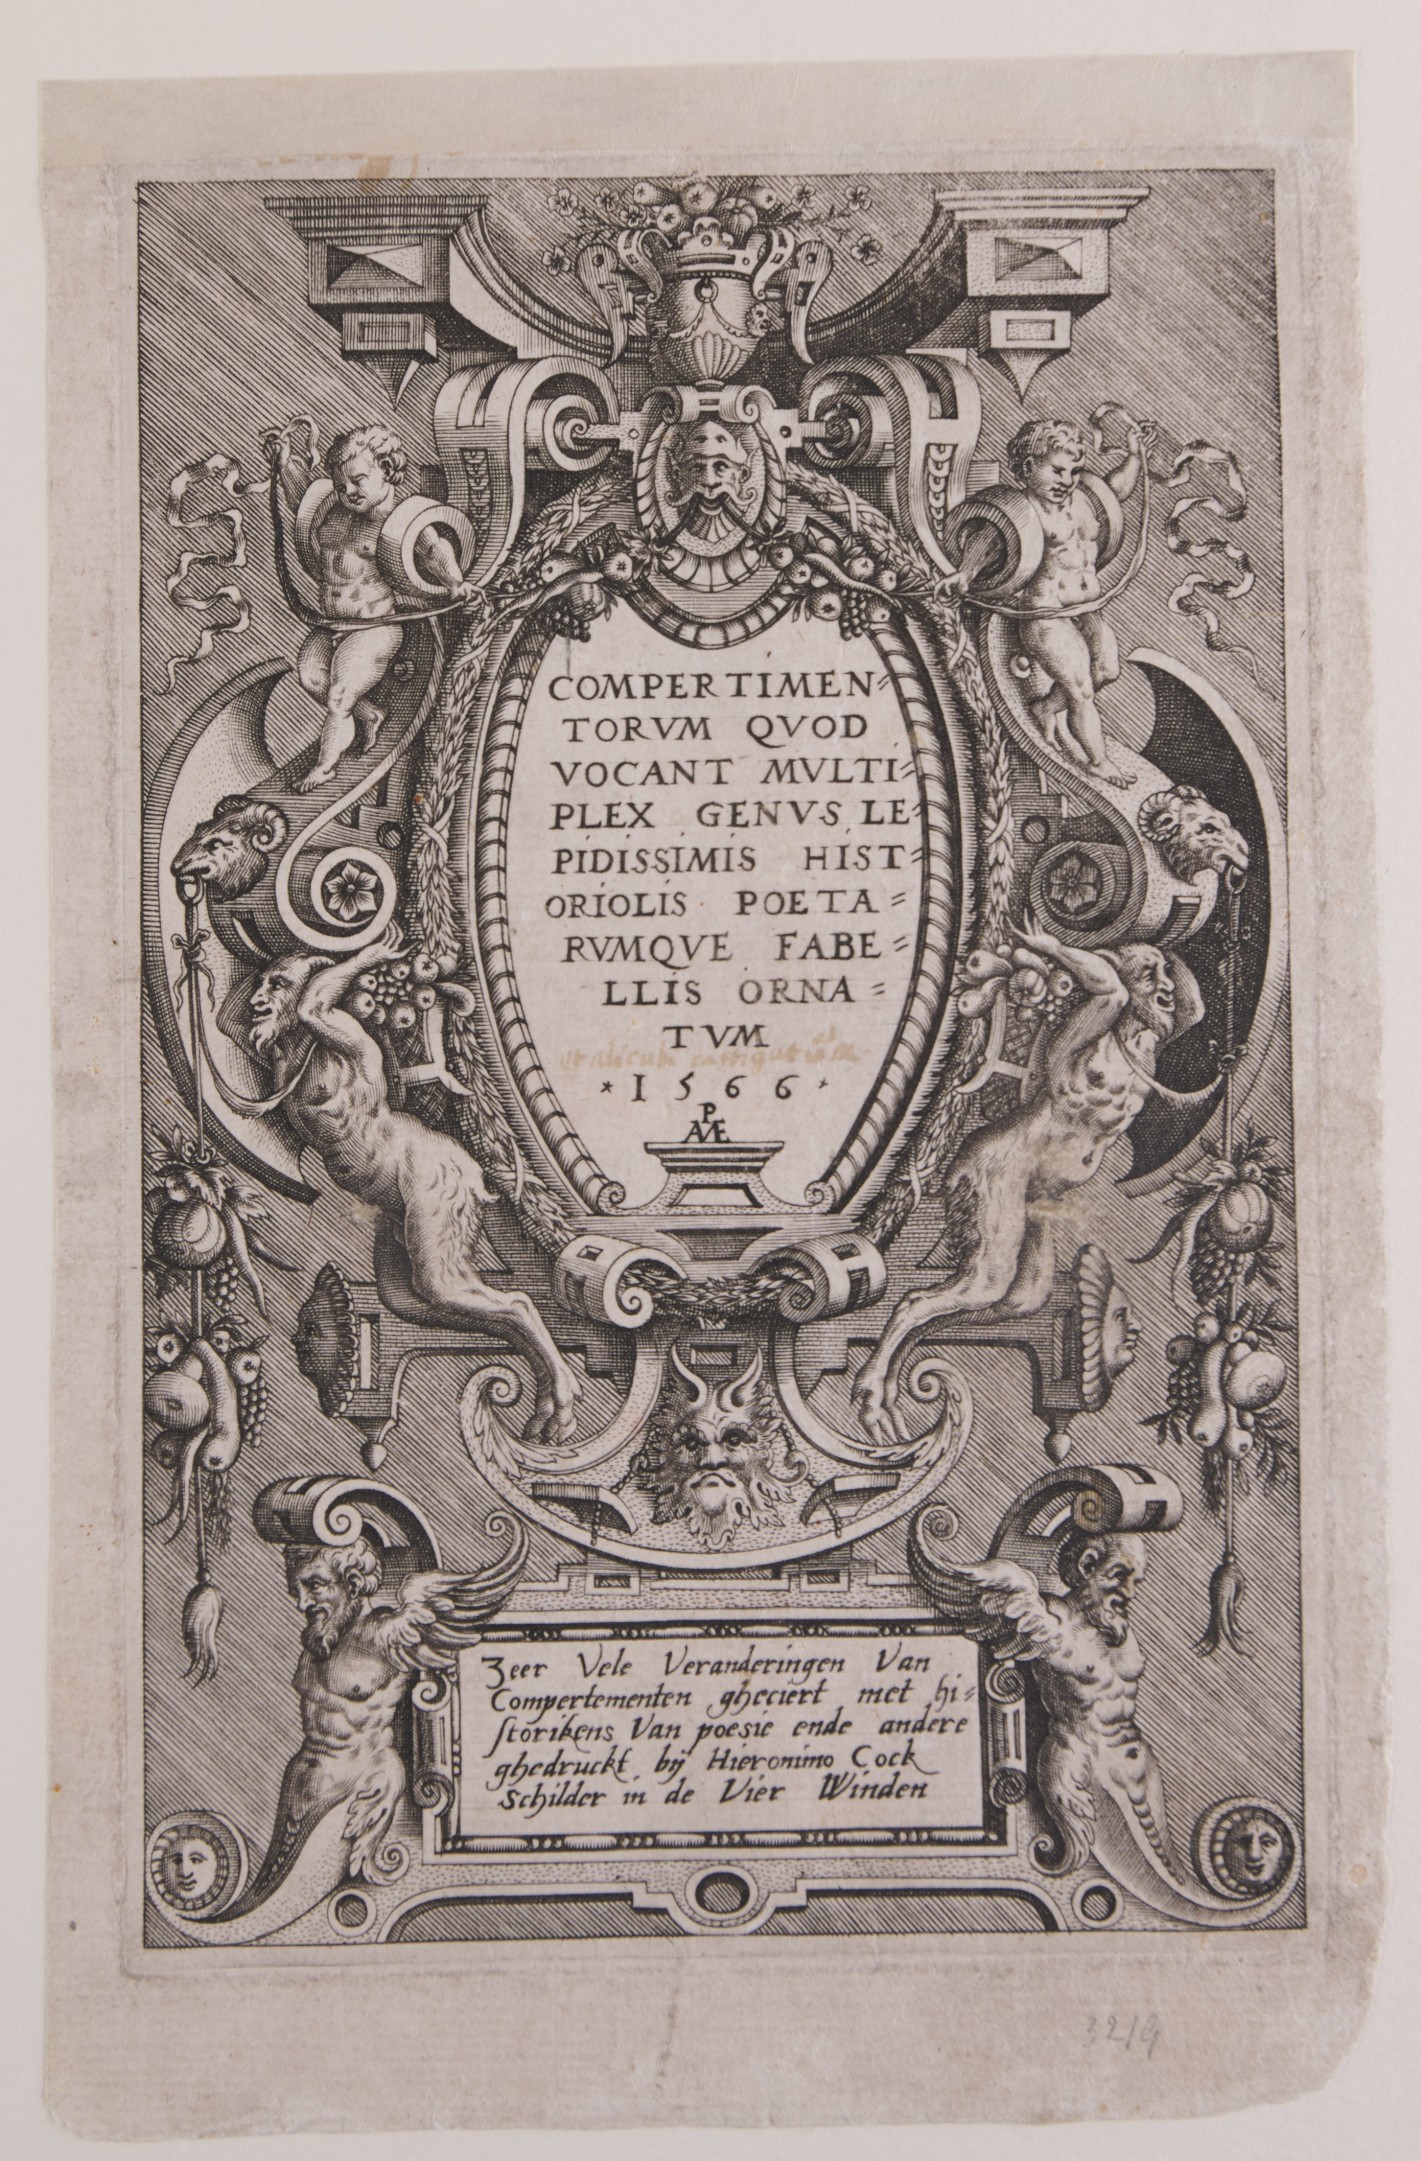 COMPERTIMEN=
TORVM QVOD
VOCANT MVLTI=
PLEX GENVS LE=
PIDISSIMIS HIST=
ORIOLIS POETA=
RVMQVE FABE=
LLIS ORNA=
TVM
*1566*
P
AME
Zeer Vele Veranderingen Van
Compertementen gheciert met hi=
storikens Van poesie ende andere
ghedruckt bij Hieronimo Cock
Schilder in de Vier Winden
3219